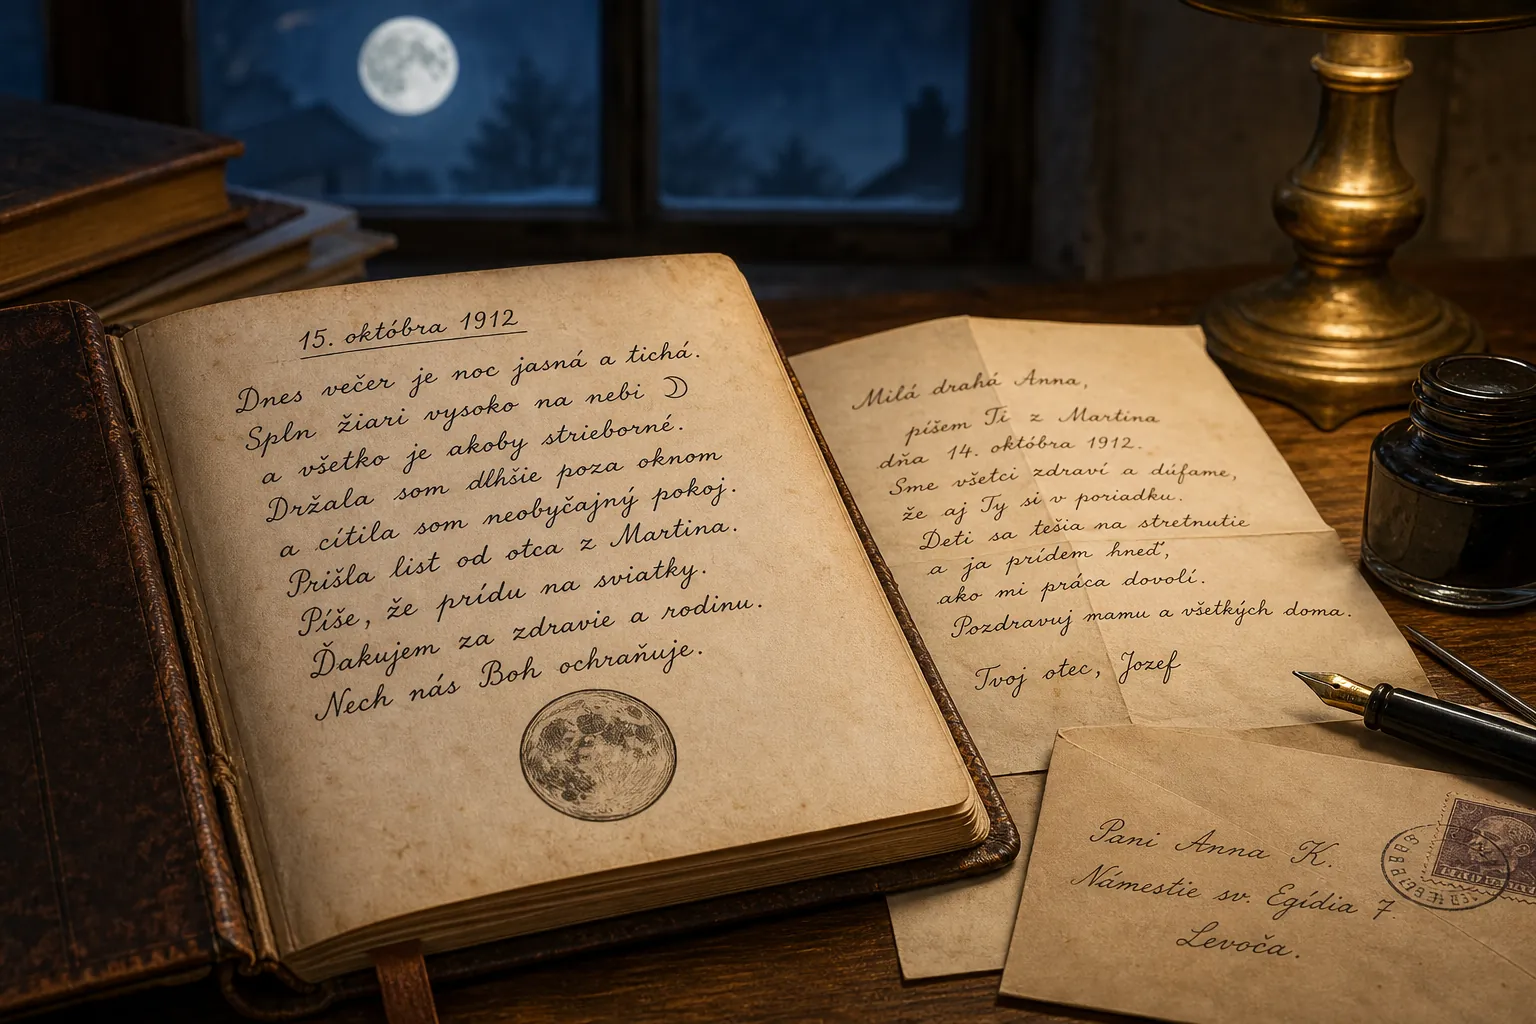 15. októbra 1912
Dnes večer je noc jasná a tichá.
Spln žiari vysoko na nebi ☽
a všetko je akoby strieborné.
Držala som dlhšie poza oknom
a cítila som neobyčajný pokoj.
Prišla list od otca z Martina.
Píše, že prídu na sviatky.
Ďakujem za zdravie a rodinu.
Nech nás Boh ochraňuje.
Milá drahá Anna,
píšem Ti z Martina
dňa 14. októbra 1912.
Sme všetci zdraví a dúfame,
že aj Ty si v poriadku.
Deti sa tešia na stretnutie
a ja prídem hneď,
ako mi práca dovolí.
Pozdravuj mamu a všetkých doma.
Tvoj otec, Jozef
Pani Anna K.
Námestie sv. Egídia 7.
Levoča.